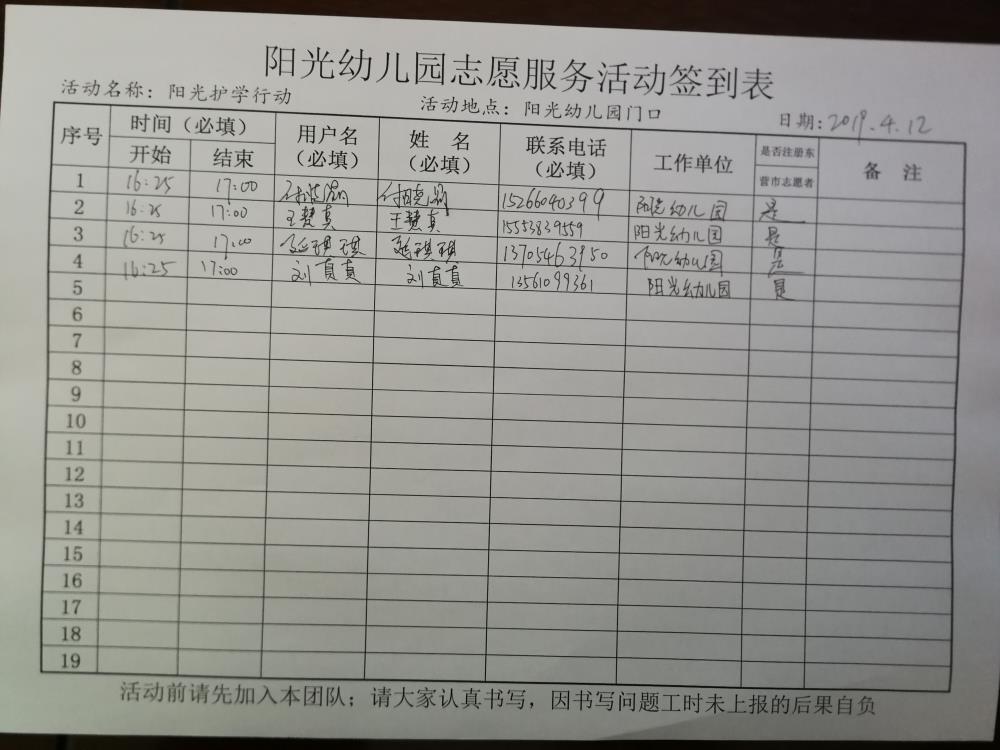 阳光幼儿园志愿服务活动签到表
活动名称：阳光护学行动 活动地点：阳光幼儿园门口 日期：2019.4.12
序号 时间（必填） 用户名（必填） 姓名（必填） 联系电话（必填） 工作单位 是否注册东营市志愿者 备注
开始 结束
1 16:25 17:00 15266040399 阳光幼儿园 是
2 16:25 17:00 王慧真 王慧真 15553839559 阳光幼儿园 是
3 16:25 17:00 琪琪 琪琪 13705463950 阳光幼儿园 是
4 16:25 17:00 刘真真 刘真真 13561099361 阳光幼儿园 是
5
6
7
8
9
10
11
12
13
14
15
16
17
18
19
活动前请先加入本团队；请大家认真书写，因书写问题工时未上报的后果自负